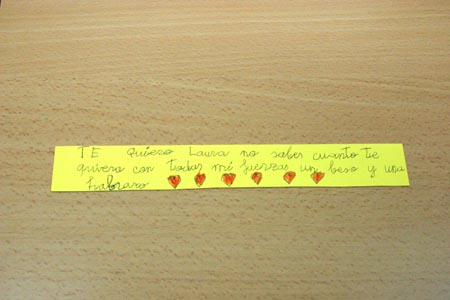 TE quiero Laura no sabes cuanto te
quiero con todas mi fuerzas un beso y una